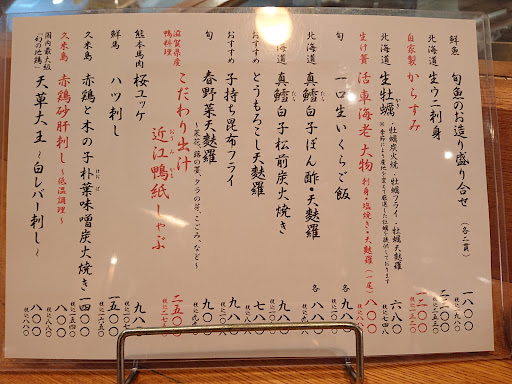 鮮魚 旬魚のお造り盛り合せ (各二貫) 一八〇〇
北海道 生ウニ刺身
自家製 からすみ 二一〇〇
北海道 生牡蠣 牡蠣炭火焼・牡蠣フライ・牡蠣天麩羅 六八〇 税込七四八
生け簀 活車海老 大物 刺身・塩焼き・天麩羅(一尾) 八〇〇 税込八八〇
旬 一口生いくらご飯 各九〇〇
北海道 真鱈白子ぽん酢・天麩羅 各九八〇
北海道 真鱈白子松前炭火焼き 九八〇
おすすめ とうもろこし天麩羅 七八〇
おすすめ 子持ち昆布フライ 九八〇
旬 春野菜天麩羅 九〇〇
~菜花、蕗の薹、タラの芽、こごみ、など~
滋賀県産 鴨料理 こだわり出汁
近江鴨紙しゃぶ 二五〇〇
熊本馬肉 桜ユッケ 九八〇
鮮馬 ハツ刺し 一五〇〇 税込一六五〇
久米島 赤鶏と木の子朴葉味噌炭火焼き 一四〇〇 税込一五四〇
久米島 赤鶏砂肝刺し ~低温調理~ 八〇〇 税込八八〇
国内最大級「幻の地鶏」 天草大王 ~白レバー刺し~ 八〇〇 税込八八〇